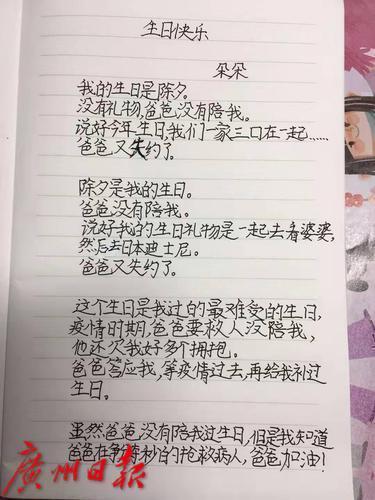 生日快乐
朵朵
我的生日是除夕。
没有礼物,爸爸没有陪我。
说好今年生日,我们一家三口在一起……
爸爸又失约了。
除夕是我的生日。
爸爸没有陪我。
说好我的生日礼物是一起去看婆婆,
然后去日本迪士尼。
爸爸又失约了。
这个生日是我过的最难受的生日,
疫情时期,爸爸要救人没陪我,
他还欠我好多个拥抱。
爸爸答应我,等疫情过去,再给我补过
生日。
虽然爸爸没有陪我过生日,但是我知道
爸爸在争分秒的抢救病人,爸爸加油!
广州日报